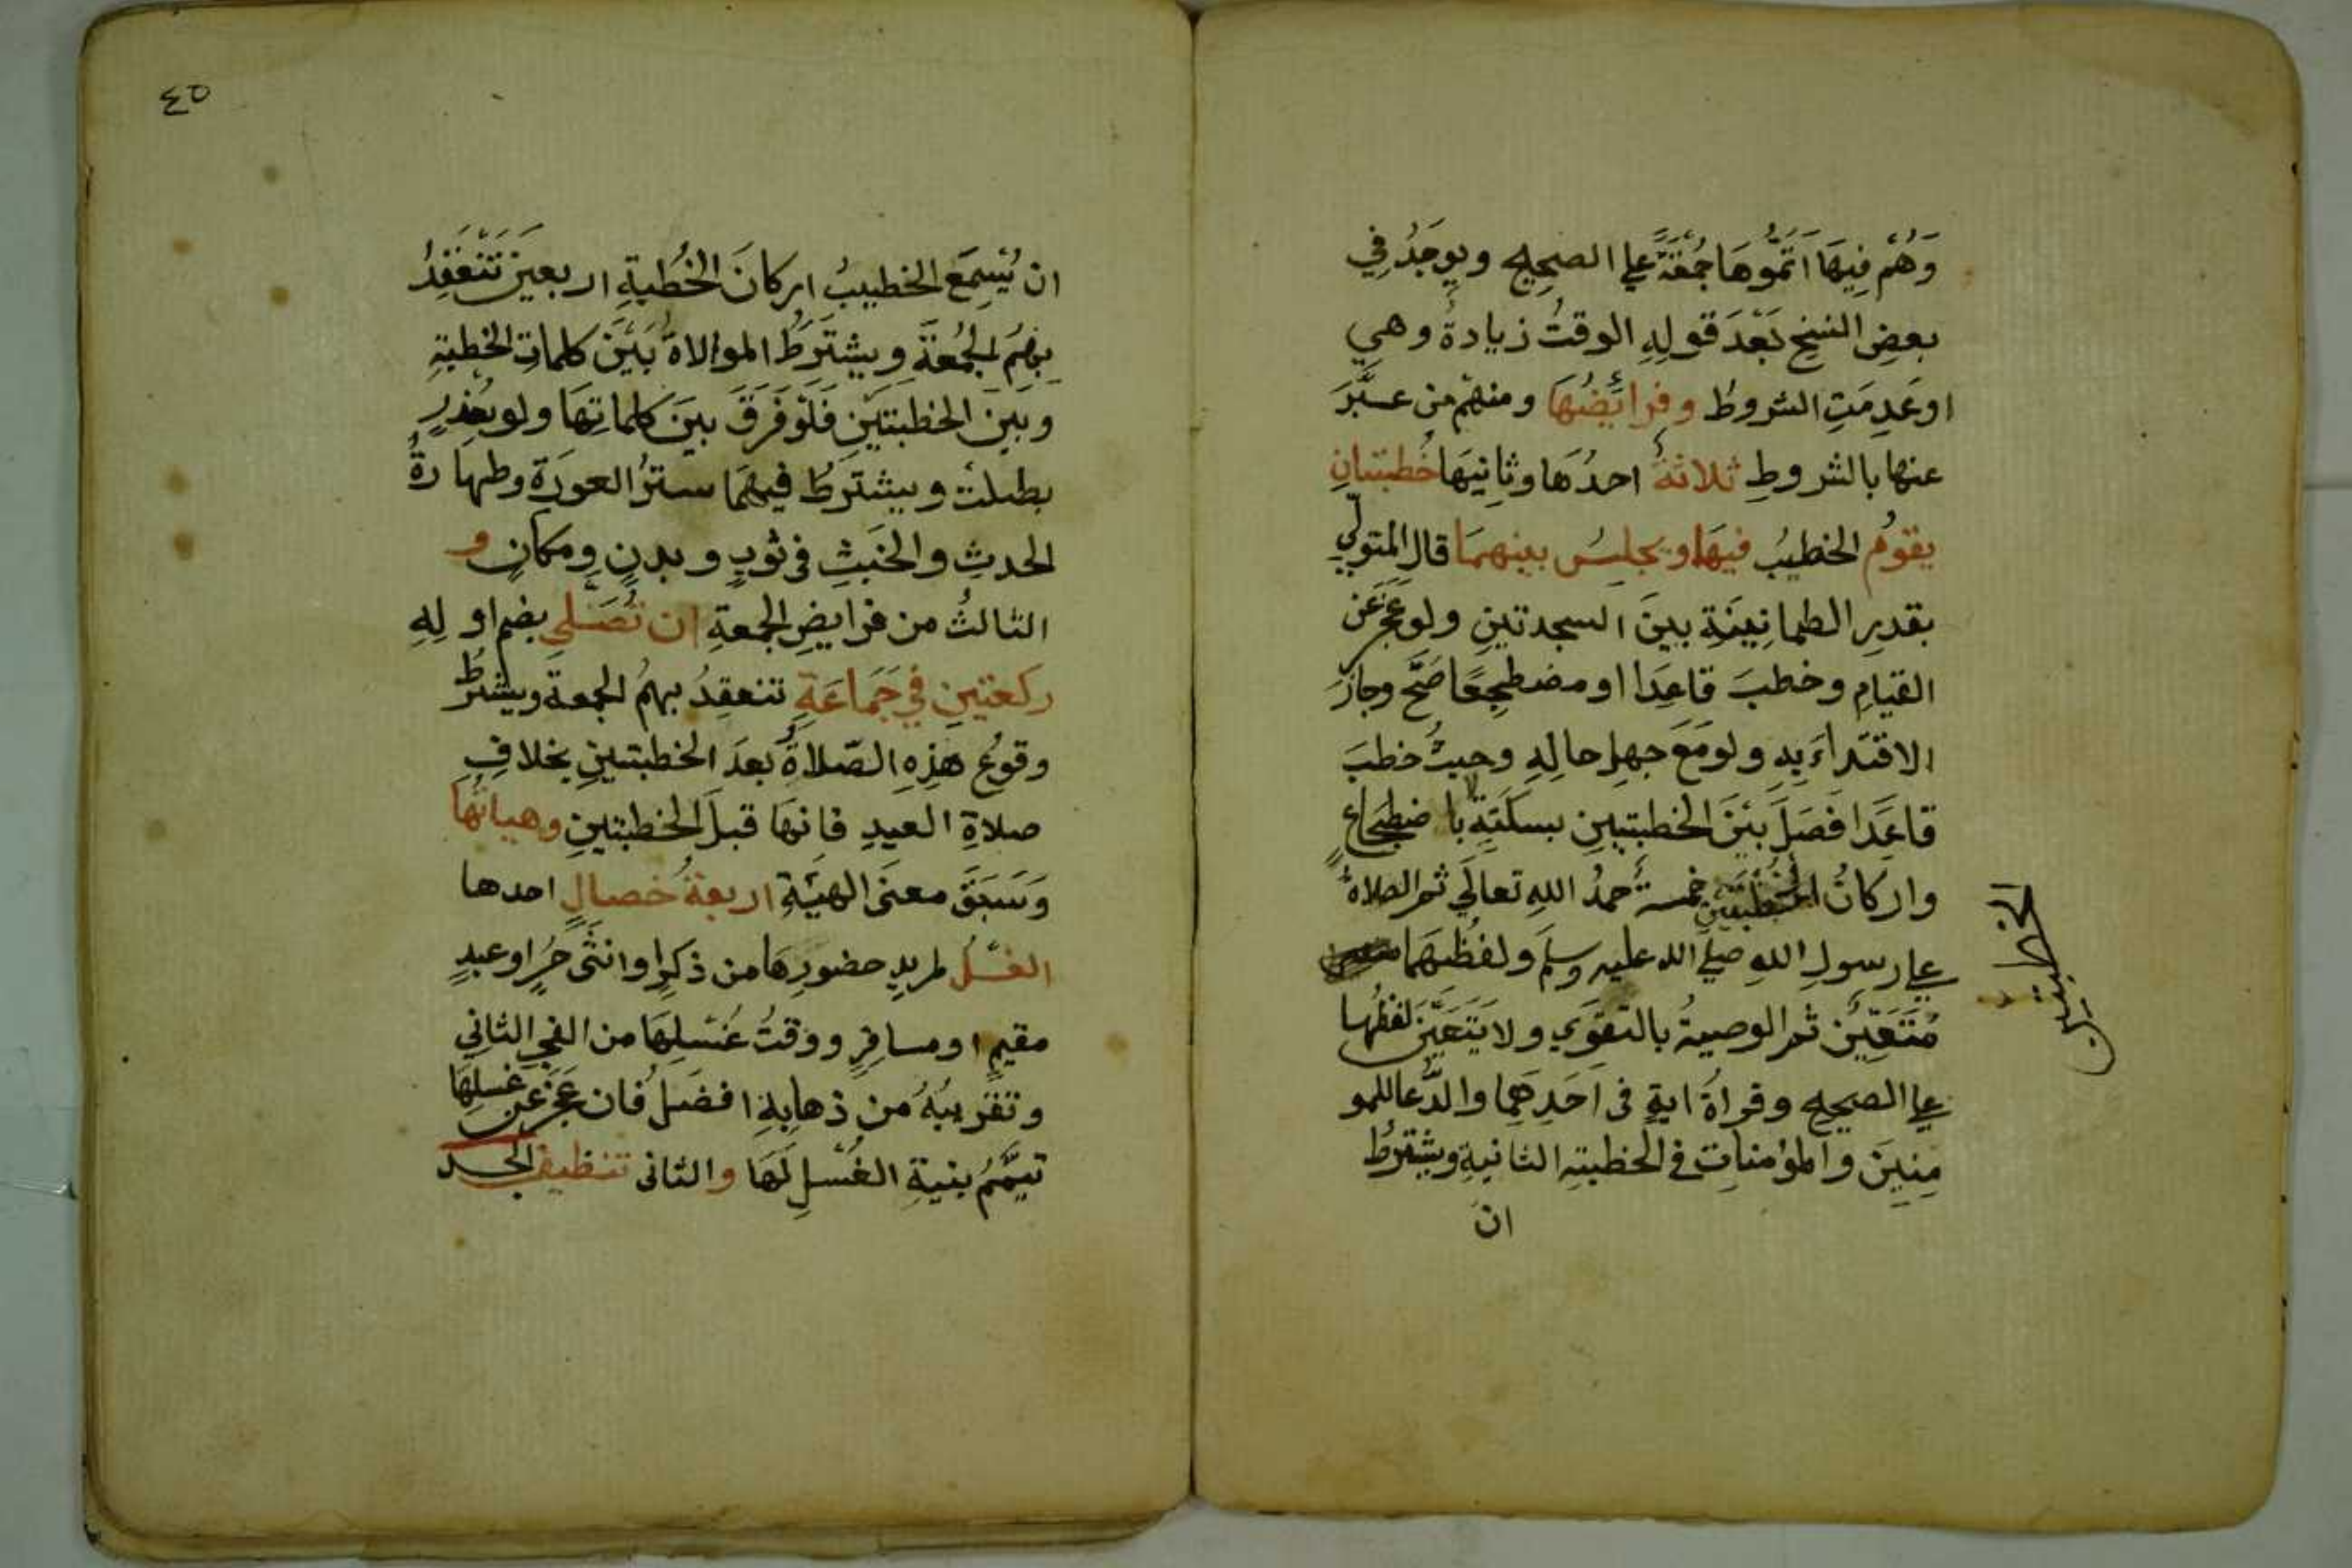 وَهُمْ فِيهَا اَتَمُّوهَا جُمُعَةً علي الصحيح ويوجَدُ في
بعضِ النسخِ بَعْدَ قولِهِ الوقتُ زيادةُ وهي
اوعَدِمَتِ الشروطُ وفرائضُهَا ومنهم من عبَّرَ
عنها بالشروطِ ثلاثةٌ احدُهَا وثانيهَا خُطبتانِ
يقومُ الخطيبُ فيهَا ويجلِسُ بينهمَا قال المتولّي
بقدرِ الطمانِينَةِ بينَ السجدتينِ ولو عَجَزَ عَن
القيامِ وخطبَ قاعِدًا او مضطجِعًا صَحَّ وجازَ
الاقتداءُ بِهِ ولو مَعَ جهلِ حالِهِ وحيثُ خطبَ
قاعِدًا فَصَلَ بَيْنَ الخطبتينِ بسكتَةٍ لا باضطجاعٍ
واركانُ الخطبتين خمسةٌ حمدُ اللهِ تعالَي ثم الصلاةُ
علي رسولِ اللهِ صلي الله عليه وسلم ولفظُهَما
مُتَعَيِّنٌ ثم الوصيةُ بالتقوَي ولا يَتَعَيَّنُ لفظُهَا
علي الصحيح وقراةُ ايةٍ في اَحَدِهِما والدُّعا للمو
مِنِينَ والمؤمناتِ في الخطبتِه الثانيةِ ويشترطُ
ان
الخطبتين
٤٥
ان يُسمِعَ الخطيبُ اركانَ الخُطبةِ اربعينَ تَنْعَقِدُ
بِهِمُ الجُمُعَةُ ويشتَرَطُ الموالاةُ بَيْنَ كلماتِ الخطبةِ
وبَينَ الخطبتَينِ فَلَو فَرَقَ بينَ كلماتِهَا ولو بعذرٍ
بطلت ويشترطُ فيهمَا سترُ العورَةِ وطهارةُ
الحدثِ والخبَثِ في ثوبٍ وبدنٍ ومكانٍ و
الثالثُ من فرايضِ الجمعةِ ان تُصَلي بضم اولِهِ
ركعتينِ في جَمَاعَةٍ تنعقِدُ بهمُ الجمعةُ ويشترطُ
وقوعُ هذِهِ الصّلاةِ بعدَ الخطبتينِ بخلافِ
صلاةِ العيدِ فانهَا قبلَ الخطبتينِ وهياتُهَا
وَسَبَقَ معنَى الهيئةِ اربعةُ خصالٍ احدها
الغسلُ لمريدِ حضورِهَا من ذكرٍ او انثى حُرٍ او عبدٍ
مقيمٍ او مسافِرٍ ووقتُ غُسْلِهَا من الفجرِ الثاني
وتقريبُهُ من ذهابِهِ افضلُ فان عَجَزَ عن غسلِهَا
تيمَّمُ بنيةِ الغُسلِ لَهَا والثاني تنظيف الجسد